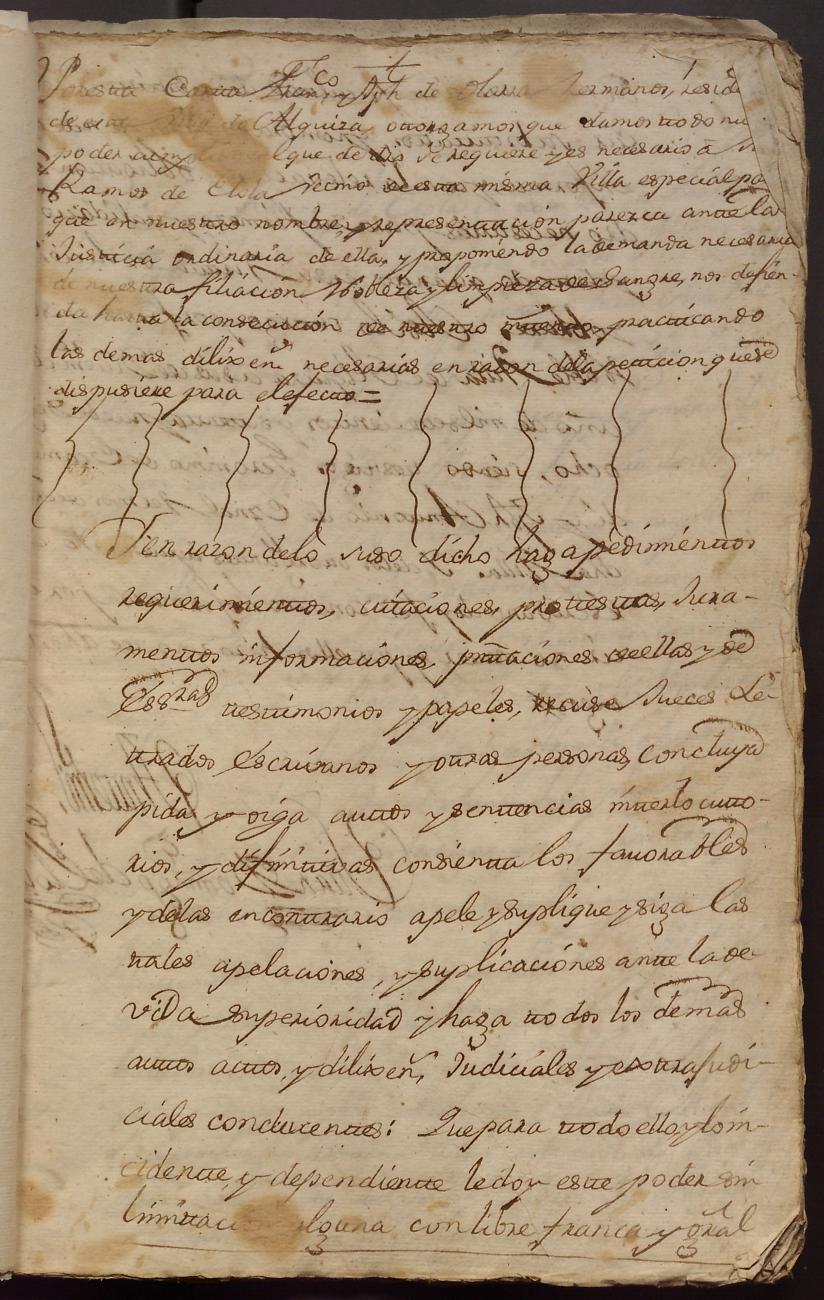 Fco
Por esta Carta Franco y Jph de Olarra hermanos, resid
de esta Villa de Alquiza, otorgamos que damos todo nu
poder cumplido el que de dro se requiere y es necesario a
Ramos de Elola vecino de esta misma Villa especial pa
que en nuestro nombre, y representación parezca ante la
Justicia ordinaria de ella, y proponiendo la demanda necesaria
de nuestra filiación Nobleza, y limpieza de Sangre, nos defien-
da hasta la consecución de nuestro intento, practicando
las demas dilixens necesarias en razon dela peticion que se
dispusiere para el efecto =
Y en razon delo suso dicho haga pedimentos
requerimientos, citaciones, protestas, Jura-
mentos informaciones, prntaciones de ellas y de
EsSras testimonios y papeles, recuse Jueces Le-
trados Escrivanos y otras personas, Concluya
pida y oiga autos y sentencias interlocuto-
rios, y difinitivas consienta los favorables
y delas en contrario apele y suplique y siga las
tales apelaciones, y suplicaciones ante la de-
vida superioridad y haga todos los demas
autos actos, y dilixens, Judiciales y extrajudi-
ciales conducentes: Que para todo ello y lo in-
cidente, y dependiente le doy este poder sin
limitación alguna con libre franca y gral